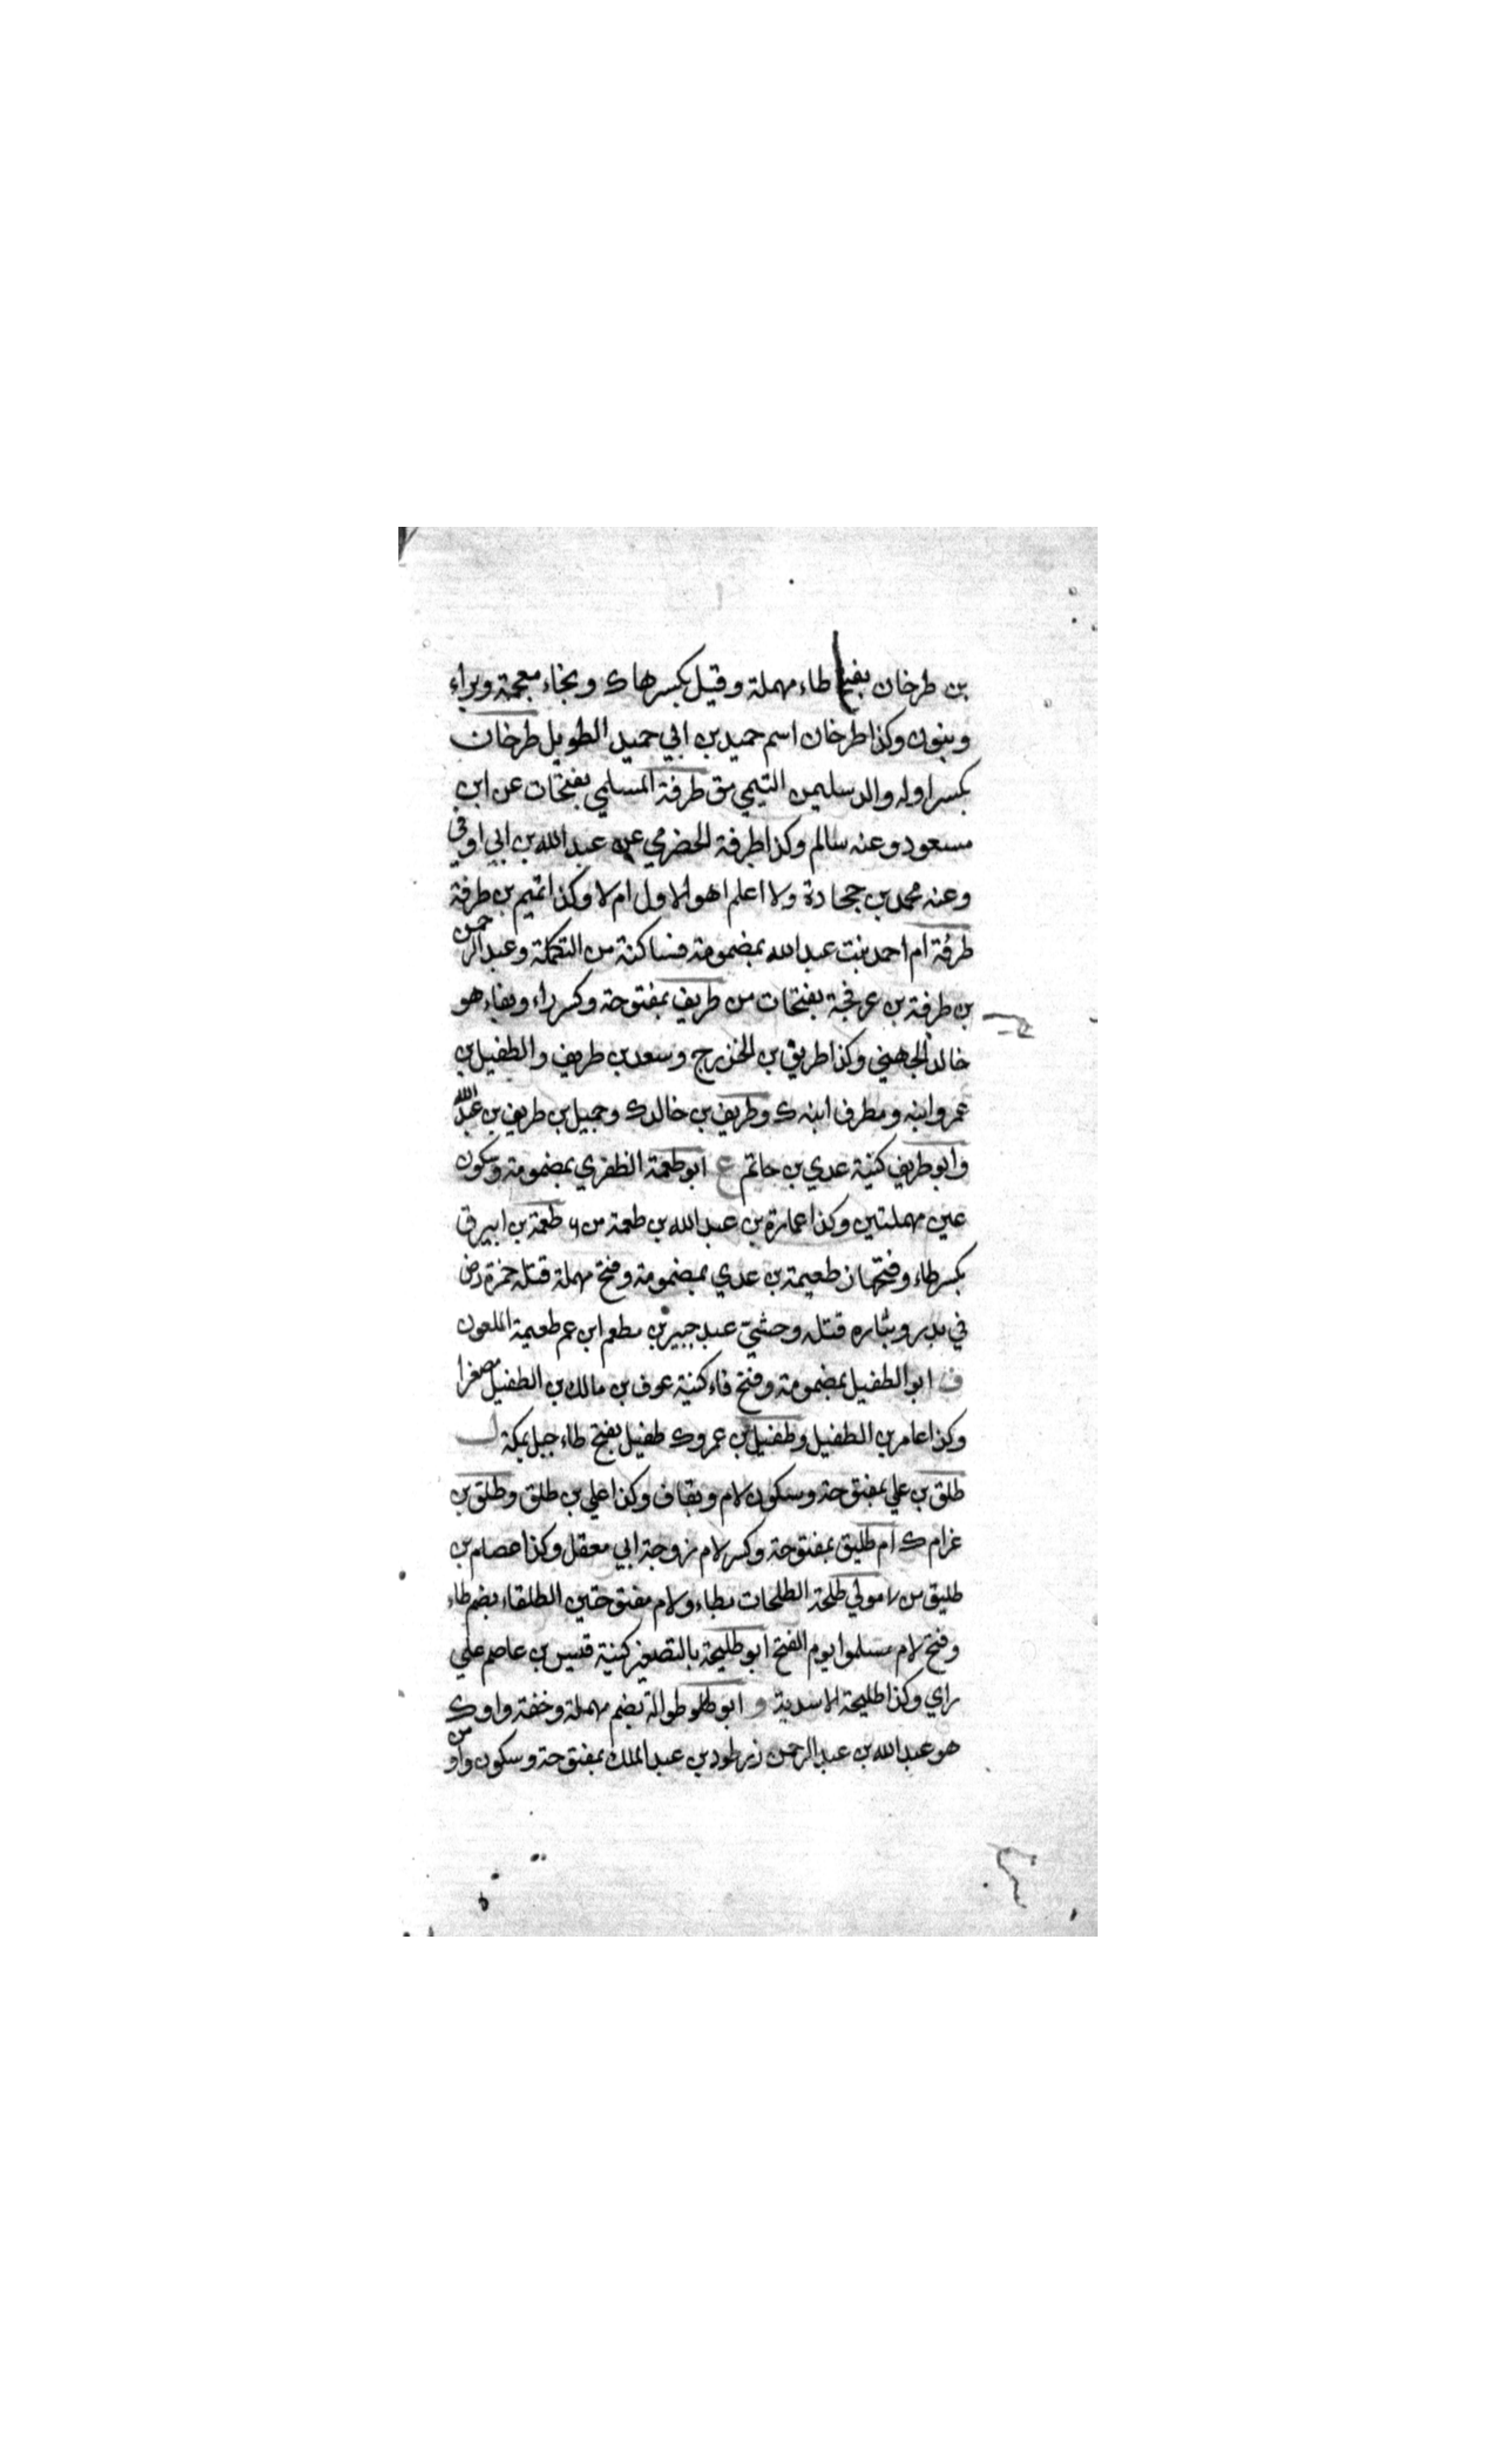 بن طرخان بفتح طاء مهملة وقيل بكسرها ك وبخاء معجمة وبراء
وبنون وكذا طرخان اسم حميد بن ابي حميد الطويل طرخان
بكسر اوله والد سليمن التيمي مق طرفة المسلمي بفتحات عن ابن
مسعود وعنه سالم وكذا طرفة الحضرمي عن عبد الله بن ابي اوفي
وعنه محمد بن جحادة ولا اعلم اهو الاول ام لا وكذا تميم بن طرفة
طرفة ام احمد بنت عبد الله بمضمومة فساكنة من التكملة وعبد الرحمن
بن طرفة بن عرفجة بفتحات من طريف بمفتوحة وكسر راء وبفاء هو
خالد الجهني وكذا طريق بن الخزرج وسعد بن طريف والطفيل بن
عمرو ابنه ومطرف ابنه ك وطريف بن خالد ك وجميل بن طريف بن عبد الله
وابو طريف كنية عدي بن حاتم ع ابو طعمة الظفري بمضمومة وسكون
عين مهملتين وكذا عمارة بن عبد الله بن طعمة من طعمة بن ابيرق
بكسر طاء وفتحها ن طعيمة بن عدي بمضمومة وفتح مهملة قتله حمزة رض
في بدر وبثاره قتله وحشي عبد جبير بن مطعم ابن عم طعيمة الملعون
ف ابو الطفيل بمضمومة وفتح فاء كنية عوف بن مالك بن الطفيل مصغرا
وكذا عامر بن الطفيل وطفيل بن عمرو ك طفيل بفتح طاء جبل بمكة ل
طلق بن علي بمفتوحة وسكون لام وبقاف وكذا علي بن طلق وطلق بن
غرام ك ام طليق بمفتوحة وكسر لام زوجة ابي معقل وكذا عصام بن
طليق من مولي طلحة الطلحات بطاء ولام مفتوحتين الطلقاء بضم طاء
وفتح لام مسلموا يوم الفتح ابو طليحة بالتصغير كنية قيس بن عاصم علي
راي وكذا طليحة الاسدية و ابو طوالة بضم مهملة وخفة واو ك
هو عبد الله بن عبد الرحمن زر طود بن عبد الملك بمفتوحة وسكون واو من